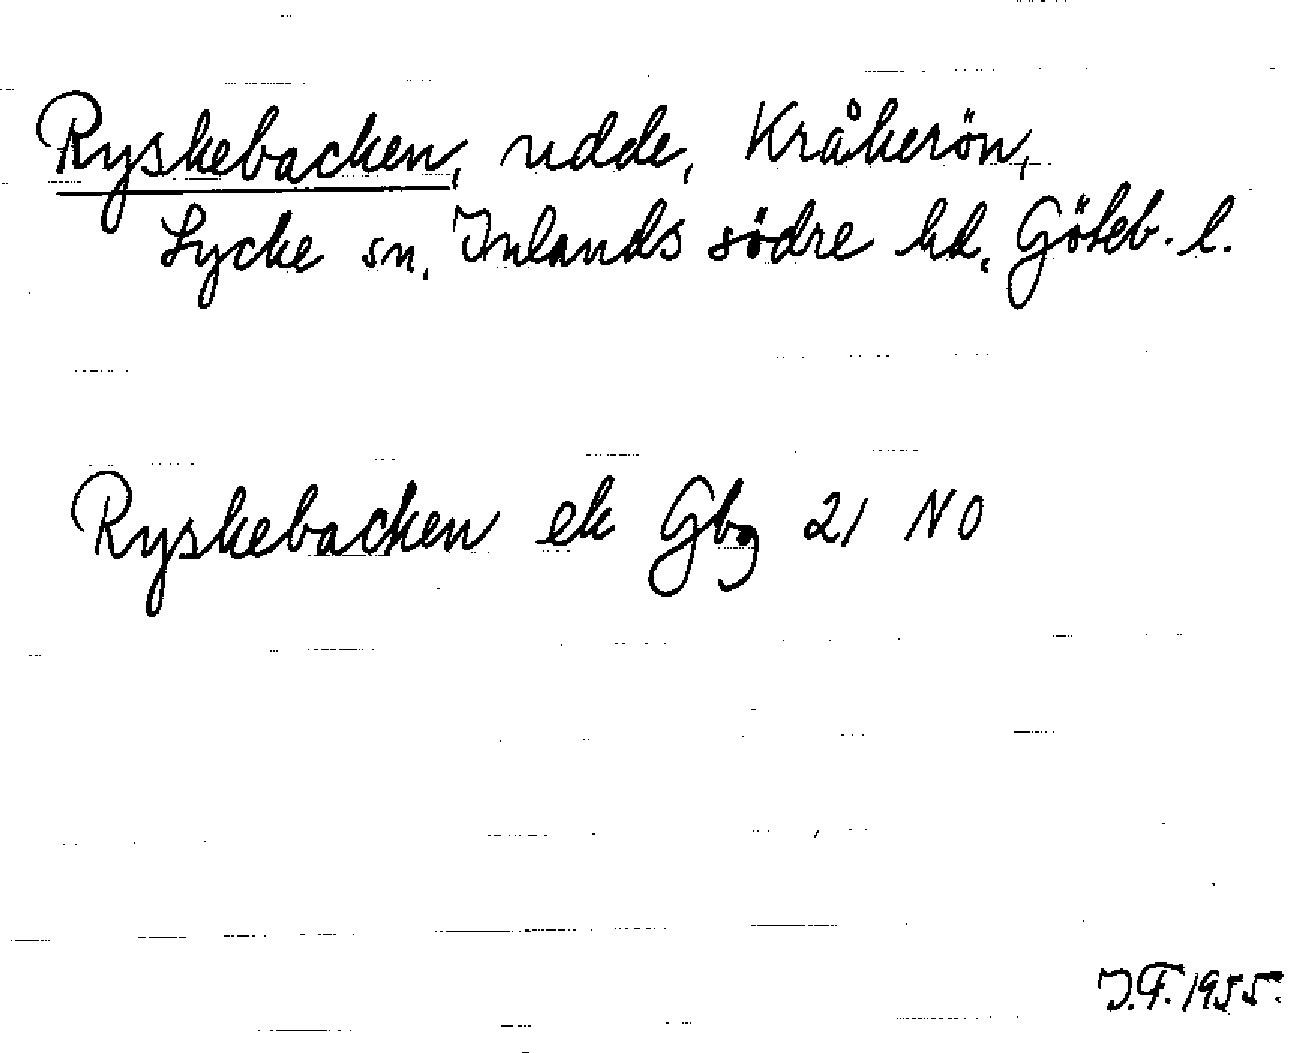 Ryskebacken, udde, Kråkerön,
Lycke sn, Inlands södre hd, Göteb. l.
Ryskebacken ek Gbg 21 NO
I.F. 1955.